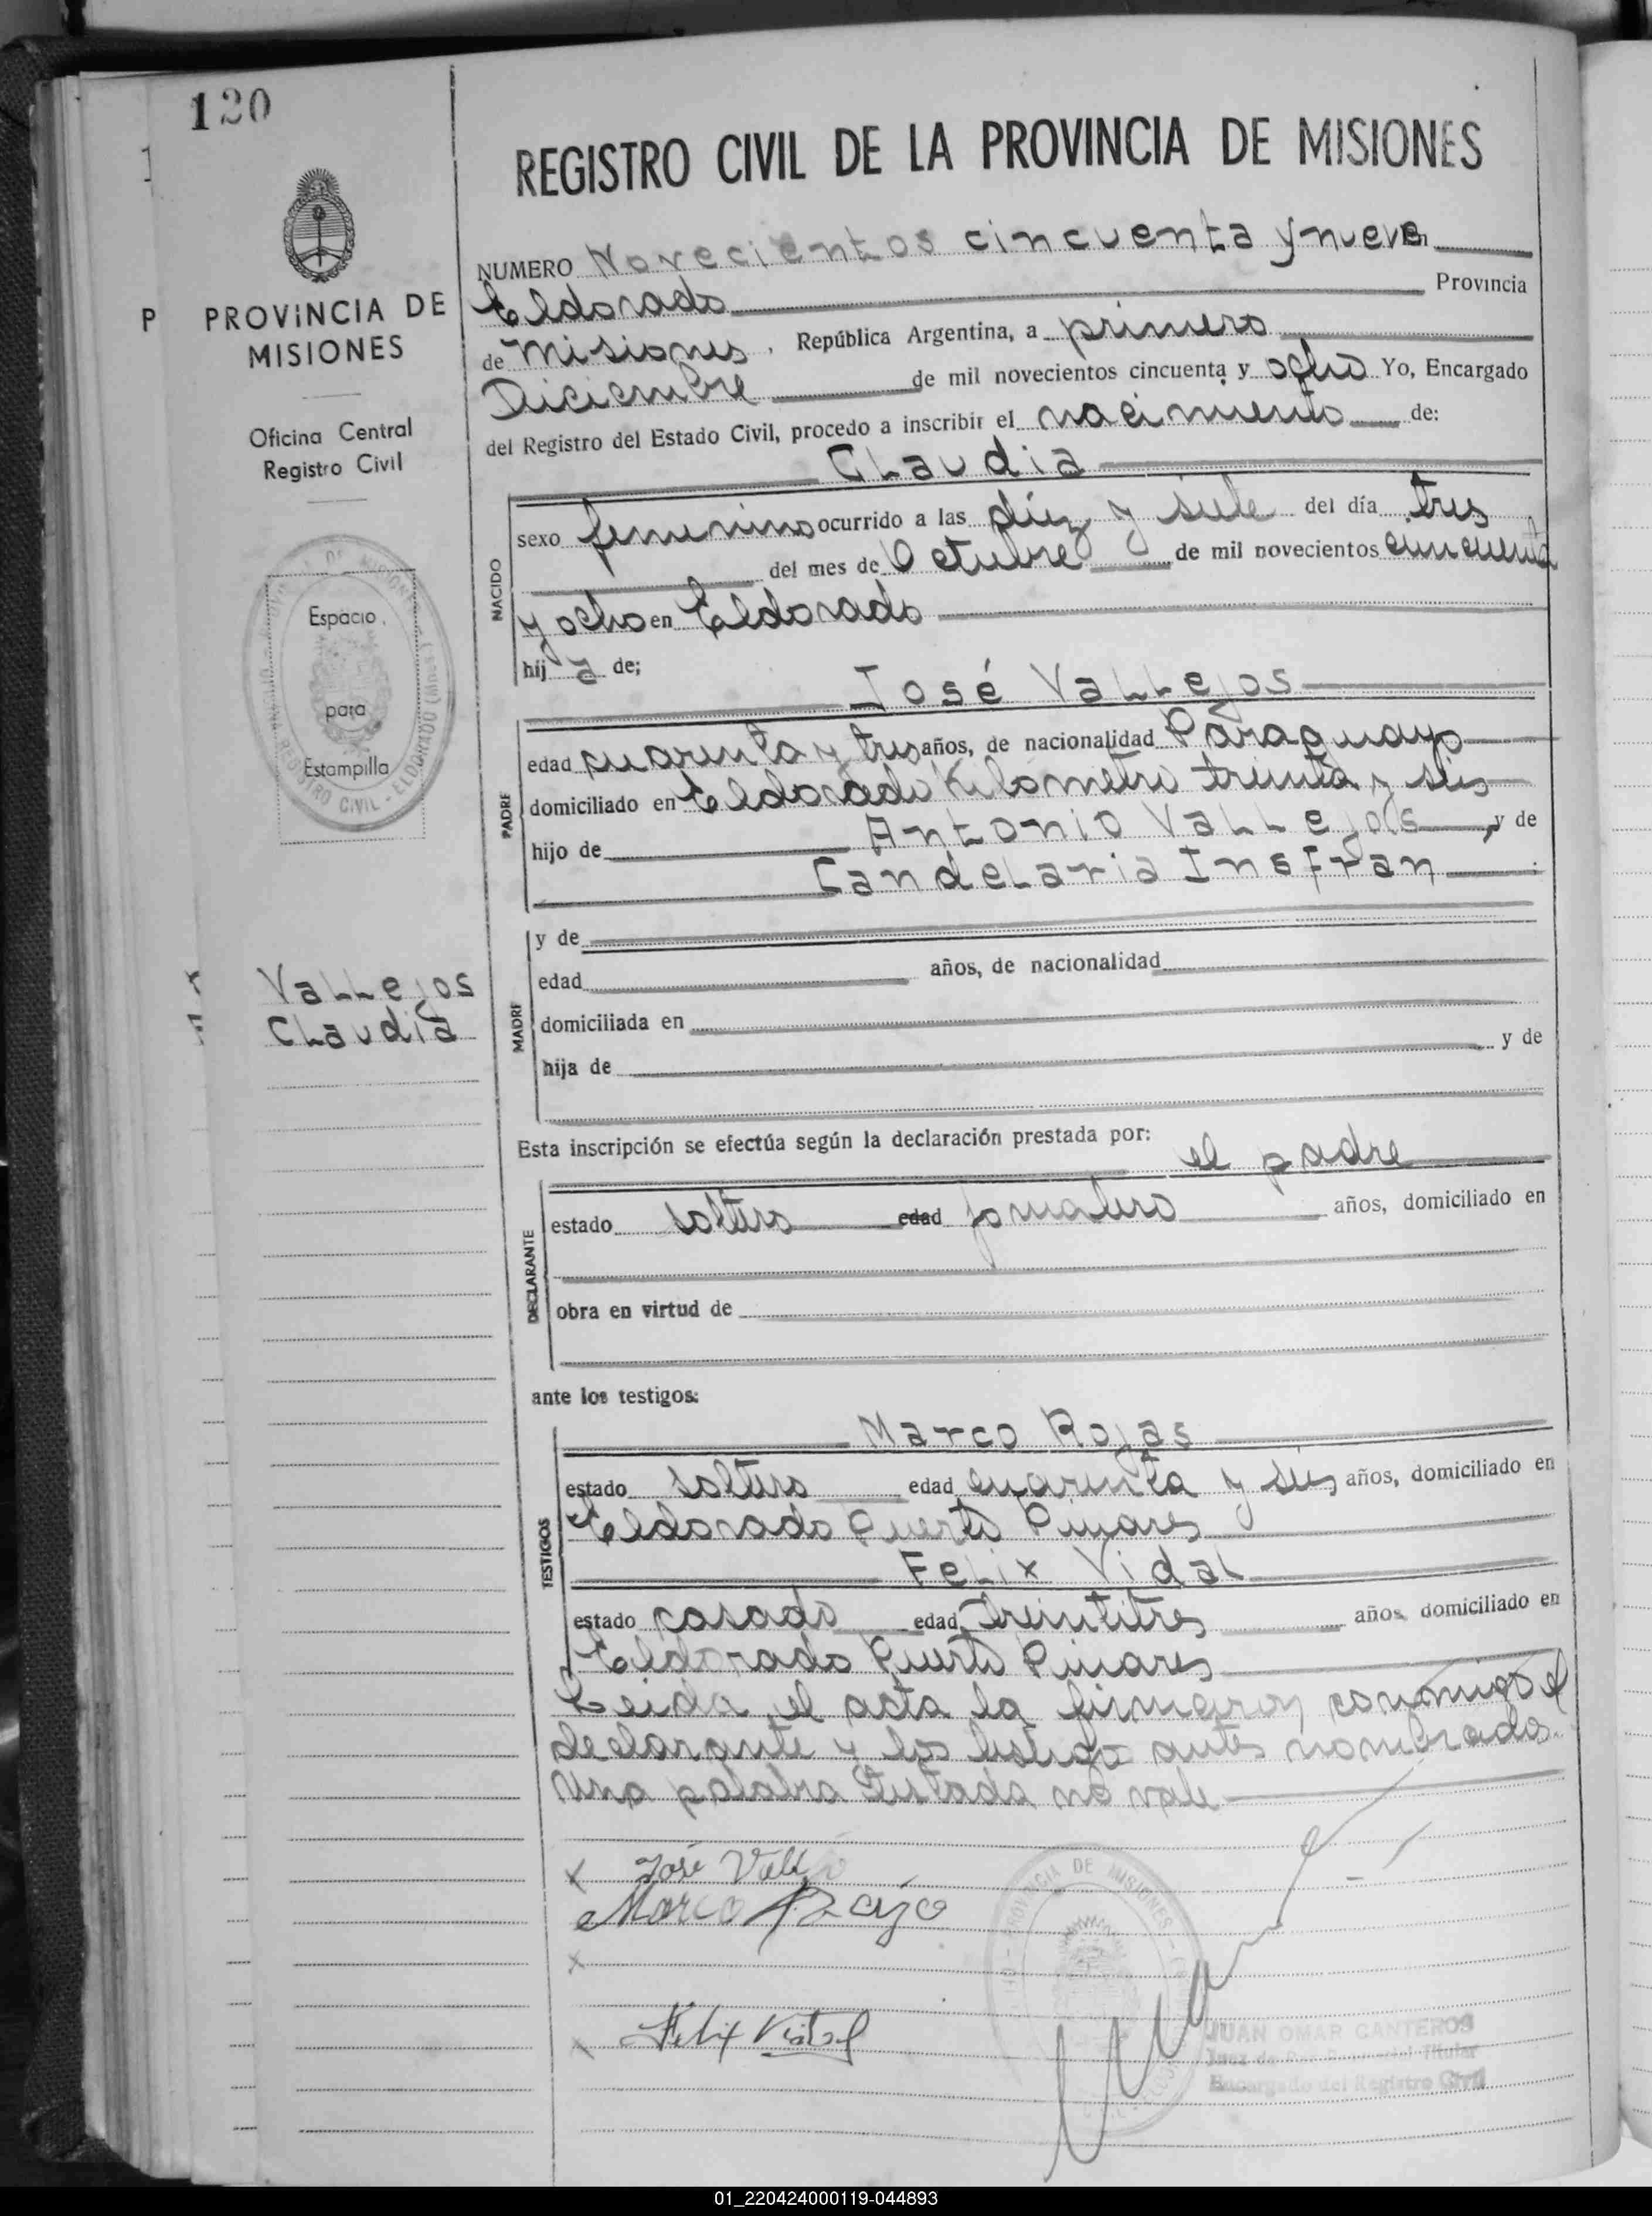 120
REGISTRO CIVIL DE LA PROVINCIA DE MISIONES
PROVINCIA DE
MISIONES
Oficina Central
Registro Civil
Espacio
para
Estampilla
Vallejos
Claudia
NUMERO Novecientos cincuenta y nueve En
Eldorado Provincia
de Misiones, República Argentina, a primero
Diciembre de mil novecientos cincuenta y ocho Yo, Encargado
del Registro del Estado Civil, procedo a inscribir el nacimiento de:
Claudia
NACIDO
sexo femenino ocurrido a las diez y siete del día tres
del mes de Octubre de mil novecientos cincuenta
y ocho en Eldorado
hij a de;
José Vallejos
PADRE
edad cuarenta y tres años, de nacionalidad Paraguayo
domiciliado en Eldorado Kilómetro treinta y seis
hijo de Antonio Vallejos y de
Candelaria Insfran
MADRE
y de
edad años, de nacionalidad
domiciliada en
hija de y de
Esta inscripción se efectúa según la declaración prestada por:
el padre
DECLARANTE
estado soltero edad jornalero años, domiciliado en
obra en virtud de
ante los testigos:
Marco Rojas
TESTIGOS
estado soltero edad cuarenta y seis años, domiciliado en
Eldorado Puerto Pinares
Felix Vidal
estado casado edad treintitres años, domiciliado en
Eldorado Puerto Pinares
Leida el acta la firmaron conmigo el
declarante y los testigos antes nombrados.
Una palabra testada no vale
José Vallejo
Marco Rojo
Felix Vidal
PROVINCIA DE MISIONES
JUAN OMAR CANTEROS
Juez de Paz Titular
Encargado del Registro Civil
01_220424000119-044893